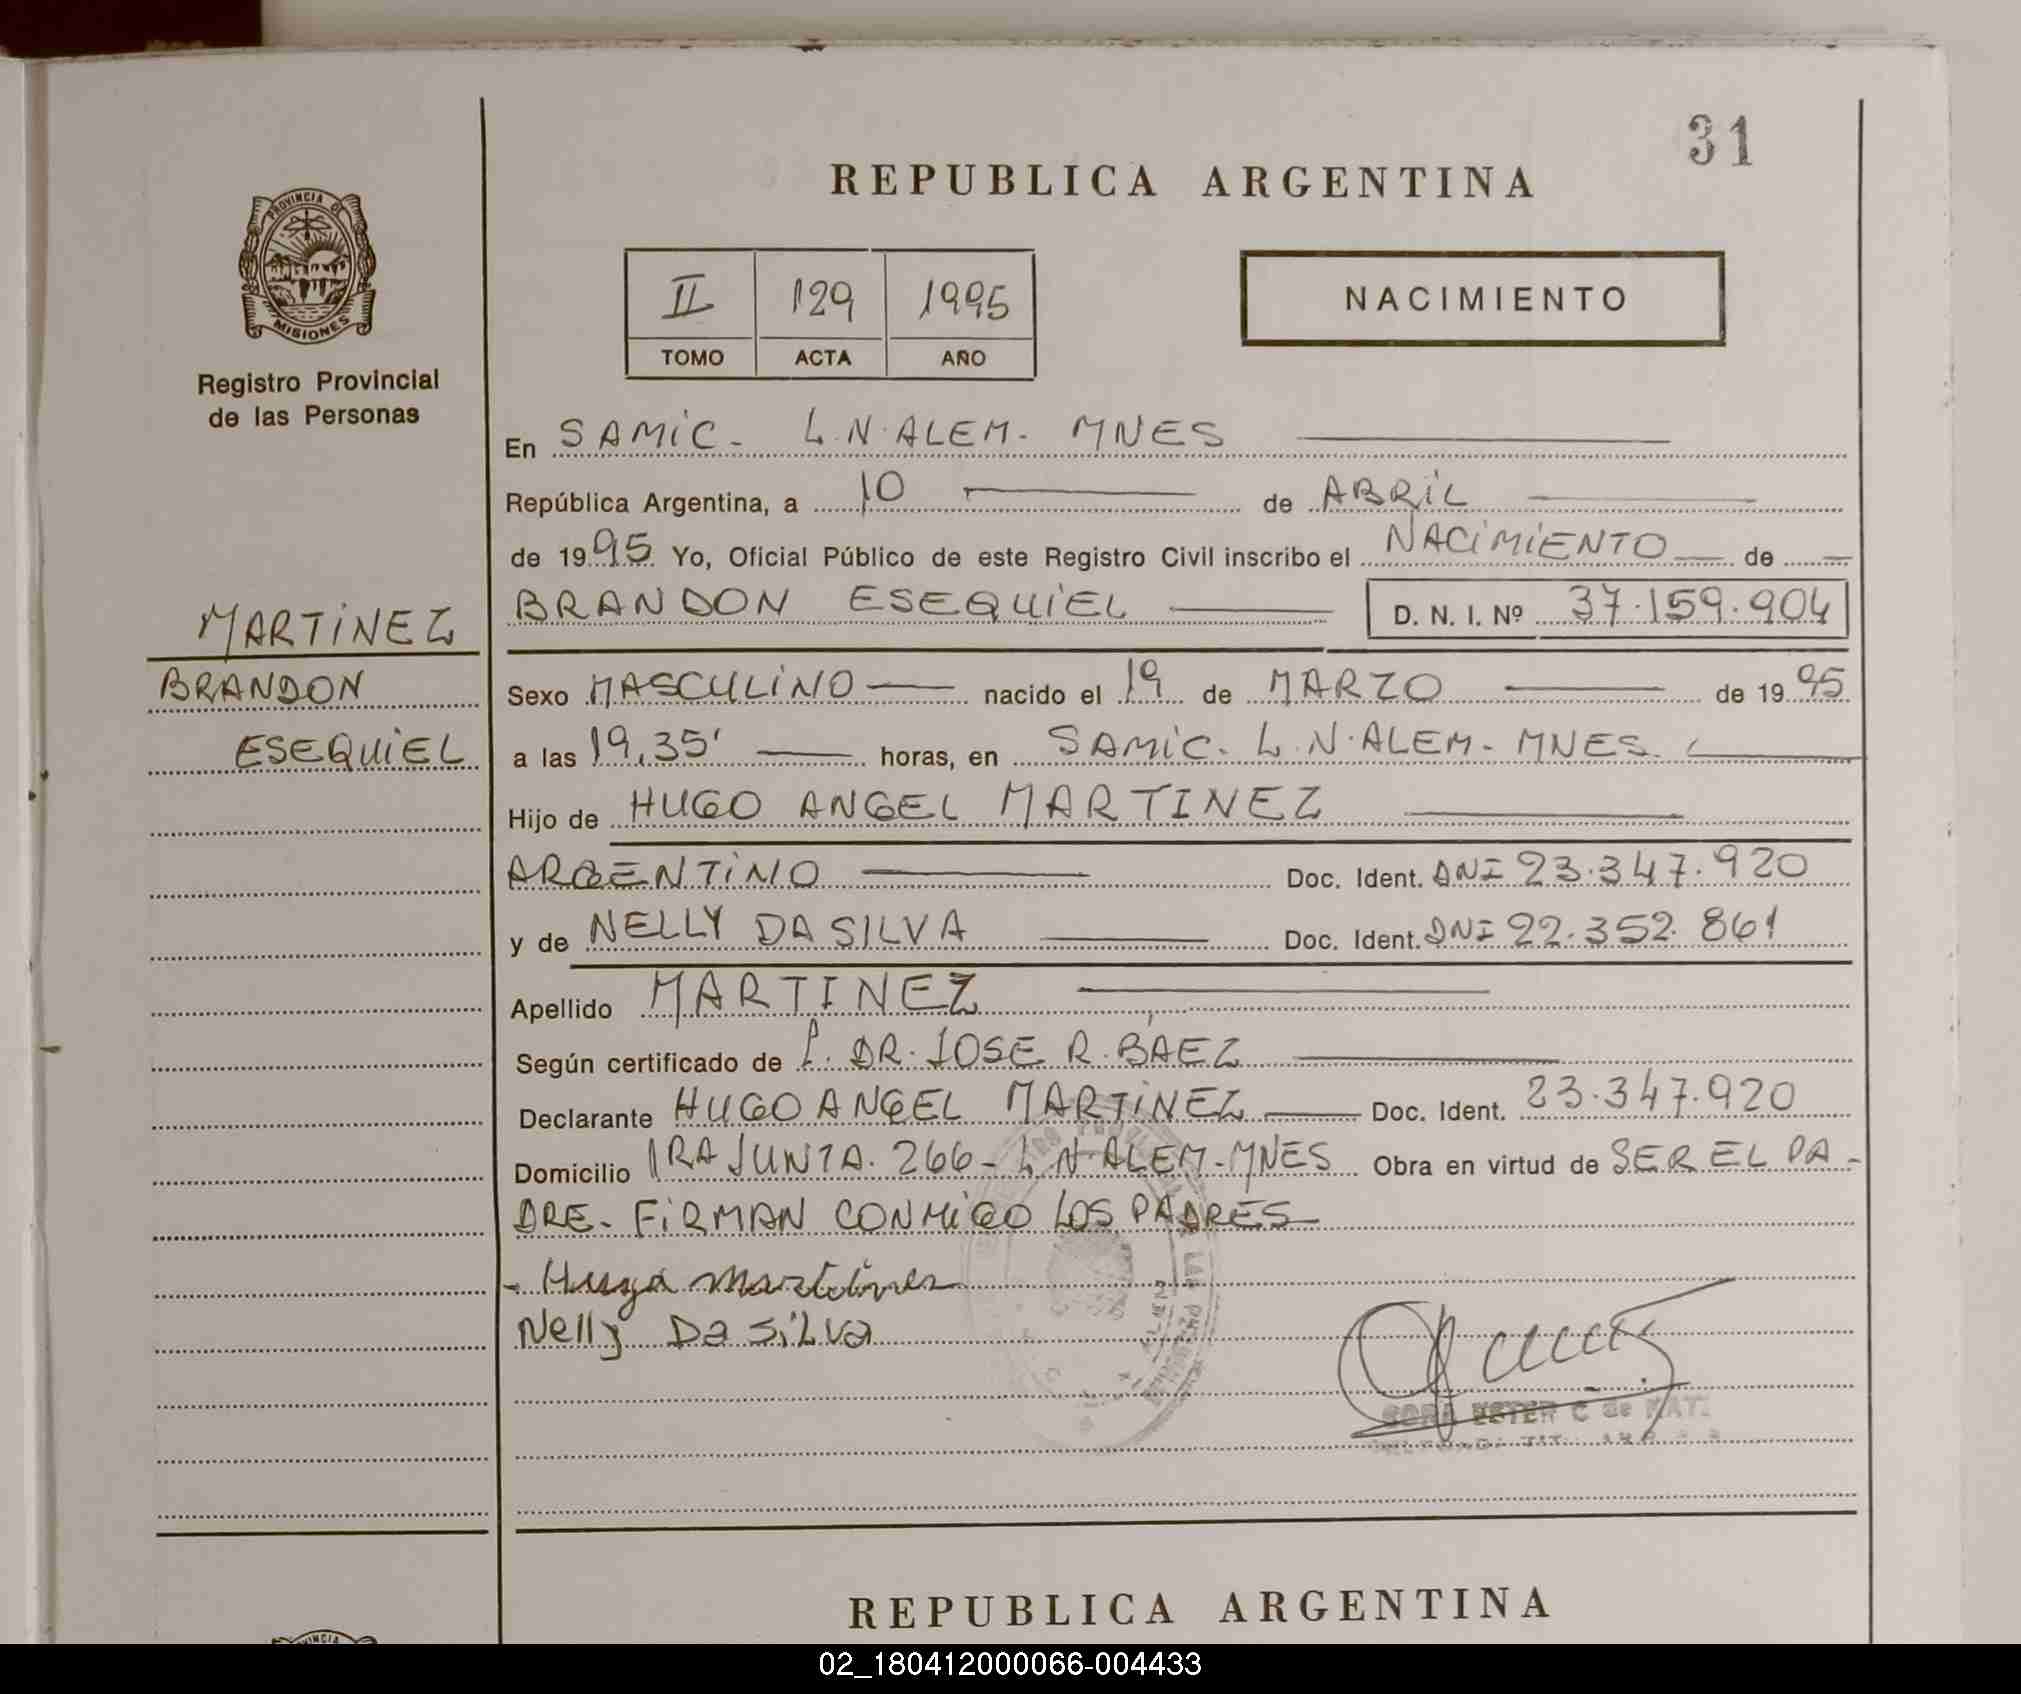 31
REPUBLICA ARGENTINA
PROVINCIA DE
MISIONES
Registro Provincial
de las Personas
II 129 1995
TOMO ACTA AÑO
NACIMIENTO
En SAMIC - L.N. ALEM - MNES
República Argentina, a 10 de ABRIL
de 1995 Yo, Oficial Público de este Registro Civil inscribo el NACIMIENTO de
BRANDON ESEQUIEL D. N. I. Nº 37.159.904
MARTINEZ
BRANDON
ESEQUIEL
Sexo MASCULINO nacido el 19 de MARZO de 1995
a las 19,35' horas, en SAMIC - L.N. ALEM - MNES.
Hijo de HUGO ANGEL MARTINEZ
ARGENTINO Doc. Ident. DNI 23.347.920
y de NELLY DA SILVA Doc. Ident. DNI 22.352.861
Apellido MARTINEZ
Según certificado de P. DR. JOSE R. BAEZ
Declarante HUGO ANGEL MARTINEZ Doc. Ident. 23.347.920
Domicilio 1RA JUNTA. 266 - L.N. ALEM - MNES Obra en virtud de SER EL PA-
DRE - FIRMAN CONMIGO LOS PADRES
- Hugo Martinez
Nelly Da SiLva
ESTER C de
REPUBLICA ARGENTINA
02_180412000066-004433